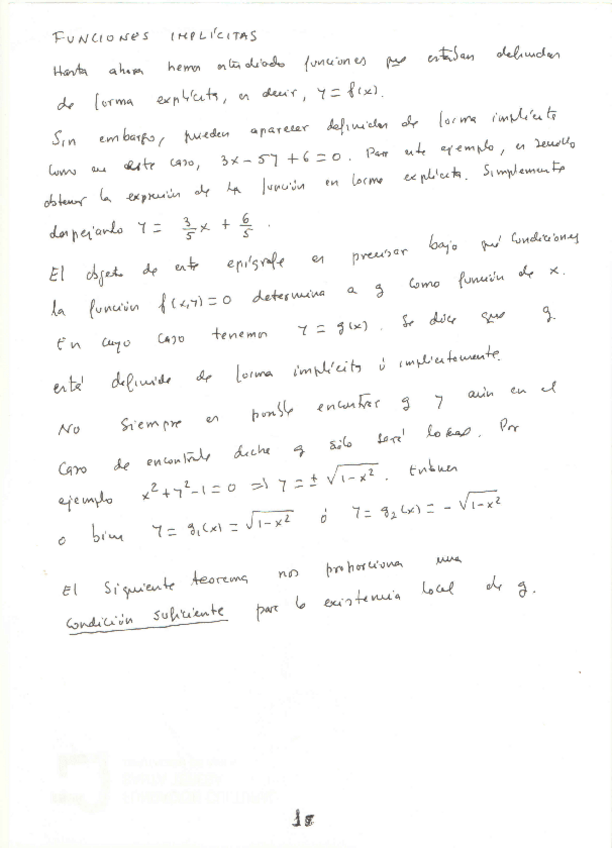 FUNCIONES IMPLÍCITAS
Hasta ahora hemos estudiado funciones que estaban definidas
de forma explícita, es decir, y = f(x).
Sin embargo, pueden aparecer definidas de forma implícita
como en este caso, 3x - 5y + 6 = 0. Para este ejemplo, es sencillo
obtener la expresión de la función en forma explícita. Simplemente
despejando y = 3/5 x + 6/5.
El objeto de este epígrafe es precisar bajo qué condiciones
la función f(x,y) = 0 determina a y como función de x.
En cuyo caso tenemos y = g(x). Se dice que g
está definida de forma implícita ó implícitamente.
No siempre es posible encontrar g y aún en el
caso de encontrarla dicha g sólo será local. Por
ejemplo x² + y² - 1 = 0 => y = ± √1-x². Entonces
o bien y = g₁(x) = √1-x² ó y = g₂(x) = - √1-x²
El siguiente teorema nos proporciona una
condición suficiente para la existencia local de g.
18